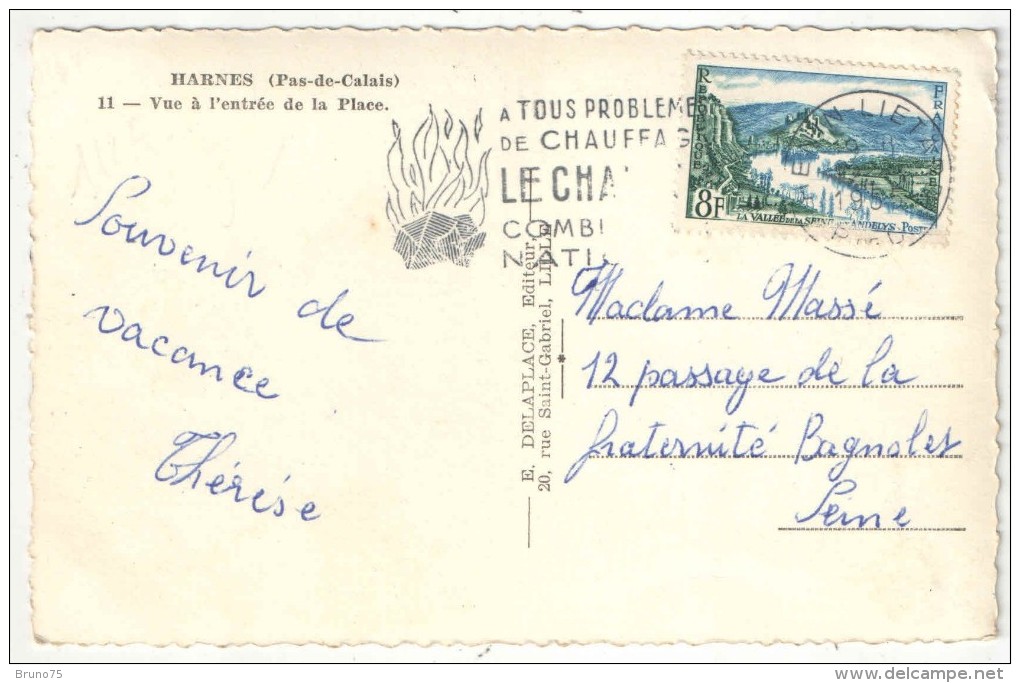 HARNES (Pas-de-Calais)
11 — Vue à l'entrée de la Place.
A TOUS PROBLEME
DE CHAUFFAG
LE CHA
COMBI
NATI
RÉPUBLIQUE
FRANÇAISE
8F
LA VALLÉE DE LA SEINE ANDELYS - POSTES
Souvenir de
vacance
Thérèse
E. DELAPLACE, Editeur,
20, rue Saint-Gabriel, LILLE
Madame Massé
12 passage de la
fraternité Bagnolet
Seine
Bruno75
delcampe.net